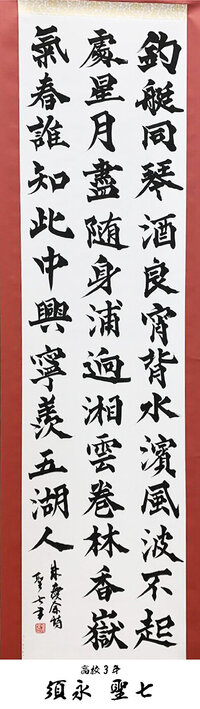 釣艇同琴酒良宵背水濱風波不起
處星月盡随身浦逈湘雲巻林香嶽
氣春誰知此中興寧羨五湖人
朱慶余詩
聖七書
高校3年
須永 聖七